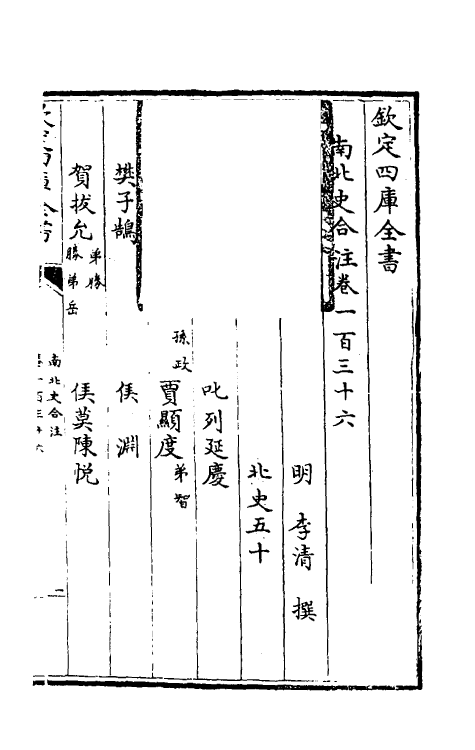 欽定四庫全書
南北史合注卷一百三十六
明 李清 撰
北史五十
叱列延慶
孫政
賈顯度 弟智
樊子鵠
侯淵
賀拔允 弟勝
勝弟岳
侯莫陳悦
南北史合注
一